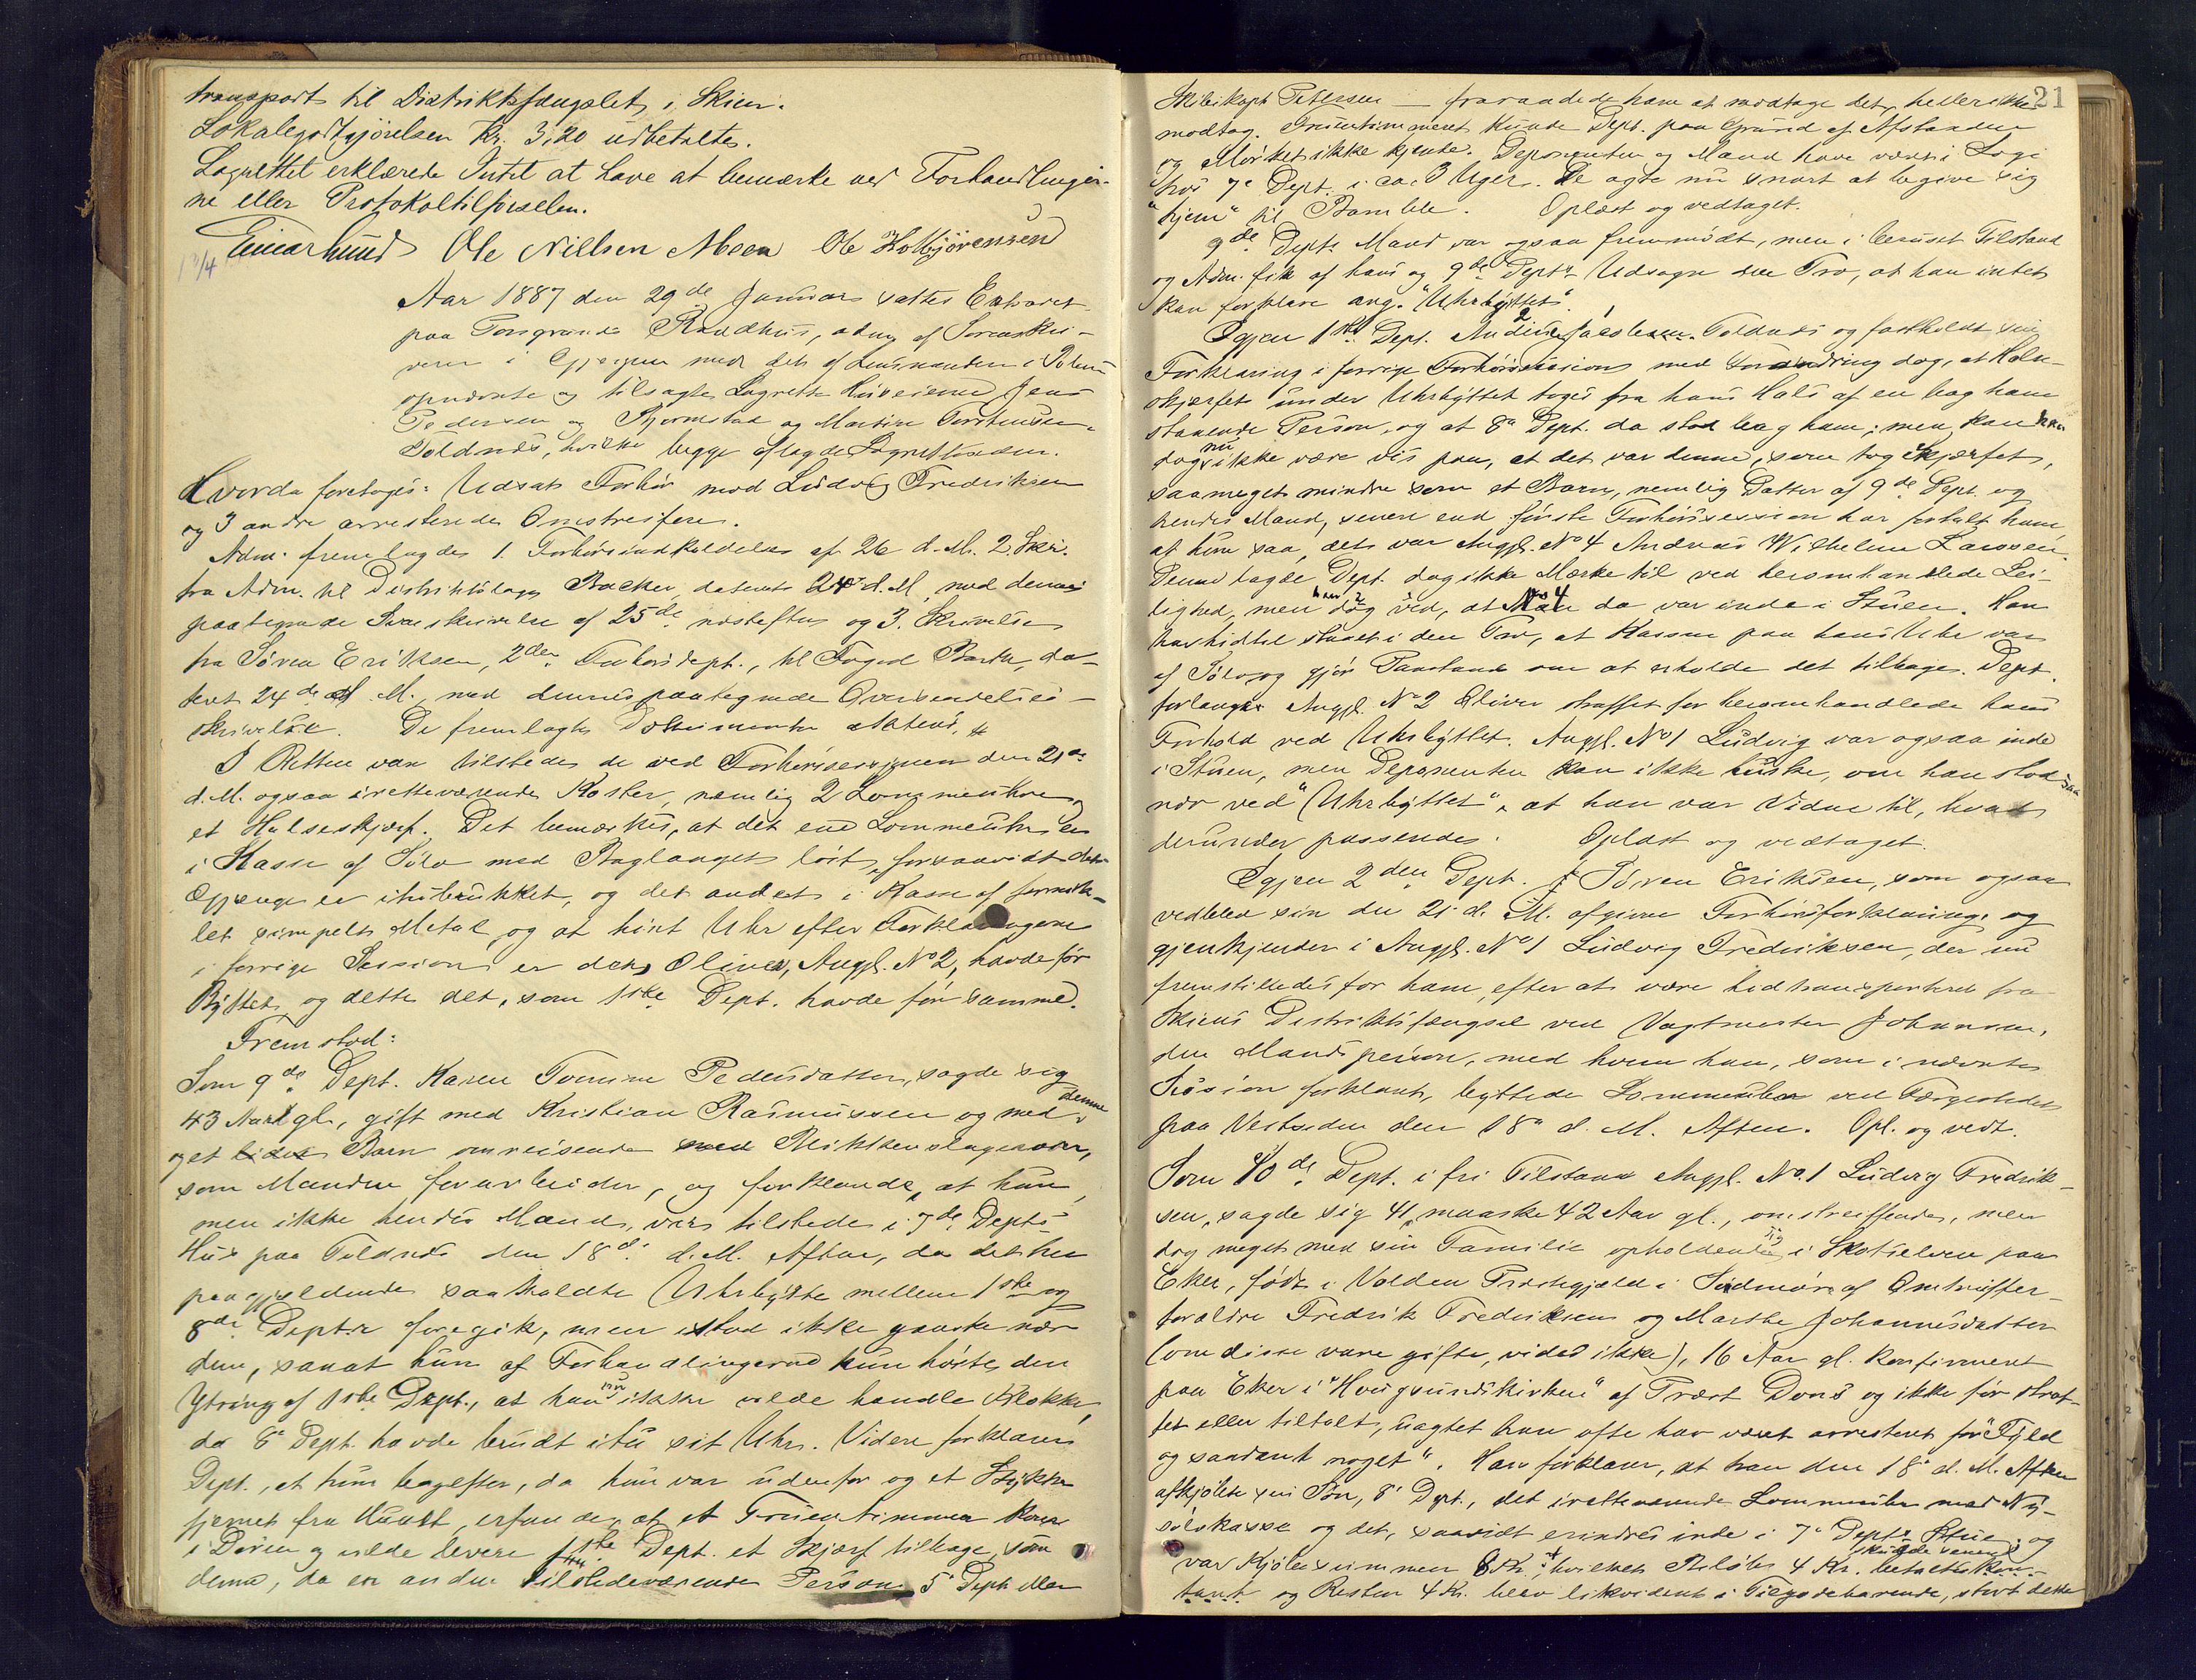 transport til Distriktsfængslet i Skien.
Lokalegodtgjörelsen Kr. 3,20 udbetaltes.
Lagrettet erklærede Intet at have at bemærke ved Forhandlinger-
ne eller Protokoltilförselen.
Einar Lund Ole Nillsen Meen Ole Kolbjörensen
Aar 1887 den 29de Januar sattes Extraret
paa Porsgrunds Raadhus, adm. af Sorenskri-
veren i Gjerpen med det af Lensmanden i
opnævnte og tilsagte Lagrette Husveierne Jens
Pedersen Bjørnstad og Martin Torstensen
Toldnæs, hvilke begge aflagde Lagrettseden.
Hvorda foretoges: Udsat Forhör mod Ludvig Fredriksen
og 3 andre arresterede Omstreifere.
Adm. fremlagde 1. Forhörsindkaldelse af 26 d. M. 2. Skr.
fra Adm. til Distriktslæge Backer, dateret 24de d. M. med dennes
paategnede Svarskrivelse af 25de næstefter og 3. Skrivelse
fra Sören Eriksen, 2den Forhörsdept., til Foged Barth, da-
teret 24de d. M., med dennes paategnede Oversendelses-
skrivelse. De fremlagte Dokumenter aktens.
I Retten var tilstede de ved Forhörsessionen den 21de
d. M. ogsaa iretteværende Koster, nemlig 2 Lommeuhre og
et Halsskjærf. Det bemærkes, at det ene Lommeuhr er
i Kasse af Sölv med Baglaaget löst, forsaavidt dets
Gjænge er itubrukket, og det andet i Kasse af forment-
let simpelt Metal, og at hint Uhr efter Forklaringerne
i forrige Session er det, Oliver, Angjl. No 2, havde för
Byttet og dette det, som 1ste Dept. havde för samme.
Fremstod:
Som 9de Dept. Karen Tomine Pedersdatter, sagde sig
43 Aar gl., gift med Kristian Rasmussen og med denne
og et Barn omreisende med Blikkenslagervarer,
som Manden forarbeider, og forklarede, at hun,
men ikke hendes Mand, var tilstede i 7de Depts
Hus paa Toldnæs den 18de d. M. Aften, da det her
paagjældende saakaldte Uhrbytte mellem 1ste og
8de Depts. foregik, men stod ikke ganske nær
dem, saa at hun af Forhandlingerne kun hörte den
Ytring af 1ste Dept., at han nu ikke vilde handle Klokke,
da 8de Dept. havde brudt itu sit Uhr. Videre forklarer
Dept., at hun bagefter, da hun var udenfor og et Stykke
fjernet fra Huset, erfarede, at et Fruentimmer kom
i Dören og vilde levere 1ste Dept. et Skjærf tilbage, som
denne, da en anden tilstedeværende Person, 5te Dept. eller
21
Skibskapt. Petersen — fraraadede ham at modtage det, heller ikke
modtog. Fruentimmeret kunde Dept. paa Grund af Afstanden
og Mörket ikke kjende. Deponenten og Mand have været i Logi
hos 7de Dept. i ca. 3 Uger. De agte nu snart at begive sig
"hjem" til Bamble. Oplæst og vedtaget.
9de Depts Mand var ogsaa fremmödt, men i beruset Tilstand
og Adm. fik af hans og 9de Depts Udsagn den Tro, at han intet
kan forklare ang. "Uhrbyttet".
Igjen 1ste Dept. Jacobsen Toldnæs og fastholdt sin
Forklaring i forrige Forhörssession med Forandring dog, at Hals-
skjærfet under Uhrbyttet toges fra hans Hals af en bag ham
staaende Person, og at 8de Dept. da stod bag ham; men kan han
dog nu ikke være vis paa, at det var denne, som tog Skjærfet,
saameget mindre som et Barn, nemlig Datter af 9de Dept. og
hendes Mand, senere end förste Forhörssession har fortalt ham
at hun saa, det var Angjl. No 4 Andreas Wilhelm Larssen.
Denne lagde Dept. dog ikke Mærke til ved heromhandlede Lei-
lighed, men han dog ved, at No 4 da var inde i Stuen. Han
har hidtil staaet i den Tro, at Kassen paa hans Uhr var
af Sölv og gjör Paastand om at erholde det tilbage. Dept.
forlanger Angjl. No 2 Oliver straffet for heromhandlede hans
Forhold ved Uhrbyttet. Angjl. No 1 Ludvig var ogsaa inde
i Stuen, men Deponenten kan ikke huske, om han stod saa
nær ved "Uhrbyttet", at han var Vidne til, hvad
derunder passerede. Oplæst og vedtaget.
Igjen 2den Dept. Sören Eriksen, som ogsaa
vedblev sin den 21. d. M. afgivne Forhörsforklaring og
gjenkjender i Angjl. No 1 Ludvig Fredriksen, der nu
fremstilledes for ham, efter at være hidtransporteret fra
Skiens Distriktsfængsel ved Vagtmester Johansen,
den Mandsperson, med hvem han, som i nævnte
Session forklaret, byttede Lommeuhr ved Færgestedet
paa Vestsiden den 18de d. M. Aften. Opl. og vedt.
Som 10de Dept. i fri Tilstand Angjl. No. 1 Ludvig Fredrik-
sen, sagde sig 41, maaske 42 Aar gl., omstreiffende, men
dog meget med sin Familie opholdende sig i Skotselven paa
Eker, födt i Volden Præstegjæld i Söndmöre af Omstreiffer-
forældre Fredrik Fredriksen og Marthe Johannesdatter
(om disse vare gifte, vides ikke), 16 Aar gl. konfirmeret
paa Eker i "Hougsundskirken" af Præst Dons og ikke för straf-
fet eller tiltalt, uagtet han ofte har været arresteret for "Fyld
og saadant noget". Han forklarer, at han den 18de d. M. Aften
afkjöbte sin Sön, 8de Dept., det iretteværende Lommeuhr med Ny-
sölvkasse og det, saavidt erindres inde i 7de Depts Stue, og
var Kjöbesummen 8 Kr., hvilket Belöb 4 Kr. skulde senere betaltes kon-
tant og Resten 4 Kr. blev likvideret i Tilgodehavende, stort dette